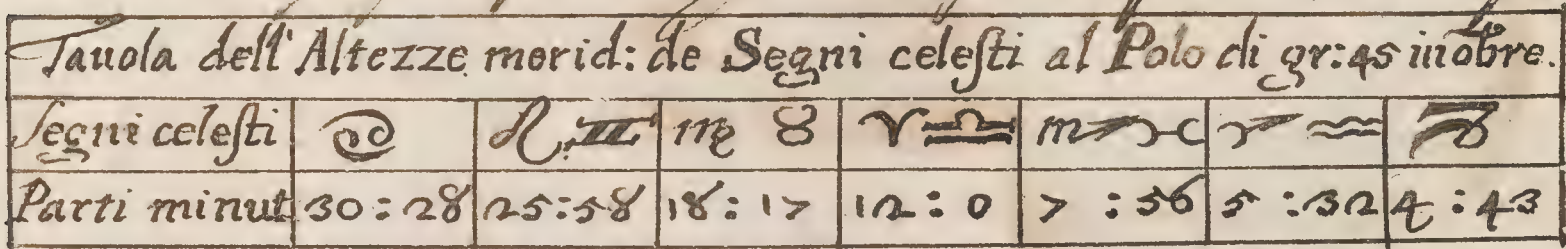 Tauola dell'Altezze merid: de Segni celeſti al Polo di gr:45 in obre.
Segni celeſti ♋ ♌ ♊ ♍ ♉ ♈ ♎ ♏ ♓ ♐ ♒ ♑
Parti minut 30:28 25:58 18:17 12:0 7:56 5:32 4:43